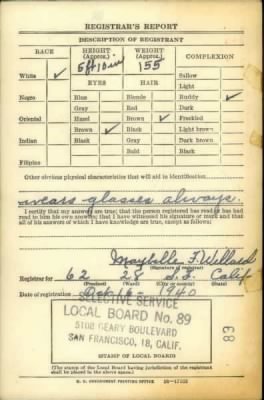 REGISTRAR'S REPORT
DESCRIPTION OF REGISTRANT
RACE HEIGHT (Approx.) WEIGHT (Approx.) COMPLEXION
5 ft 10 in 155
White ✓ Sallow
EYES HAIR Light
Negro Blue Blonde Ruddy ✓
Gray Red Dark
Oriental Hazel Brown ✓ Freckled
Brown ✓ Black Light brown
Indian Black Gray Dark brown
Bald Black
Filipino
Other obvious physical characteristics that will aid in identification
wears glasses always.
I certify that my answers are true; that the person registered has read or has had
read to him his own answers; that I have witnessed his signature or mark and that
all of his answers of which I have knowledge are true, except as follows:
Maybelle F. Willard
(Signature of registrar)
Registrar for 62 28 S.F. Calif
(Precinct) (Ward) (City or county) (State)
Date of registration Oct 16 - 1940
SELECTIVE SERVICE
LOCAL BOARD No. 89
5108 GEARY BOULEVARD
SAN FRANCISCO, 18, CALIF.
89
STAMP OF LOCAL BOARD)
(The stamp of the Local Board having jurisdiction of the registrant
shall be placed in the above space.)
U. S. GOVERNMENT PRINTING OFFICE 16-17105